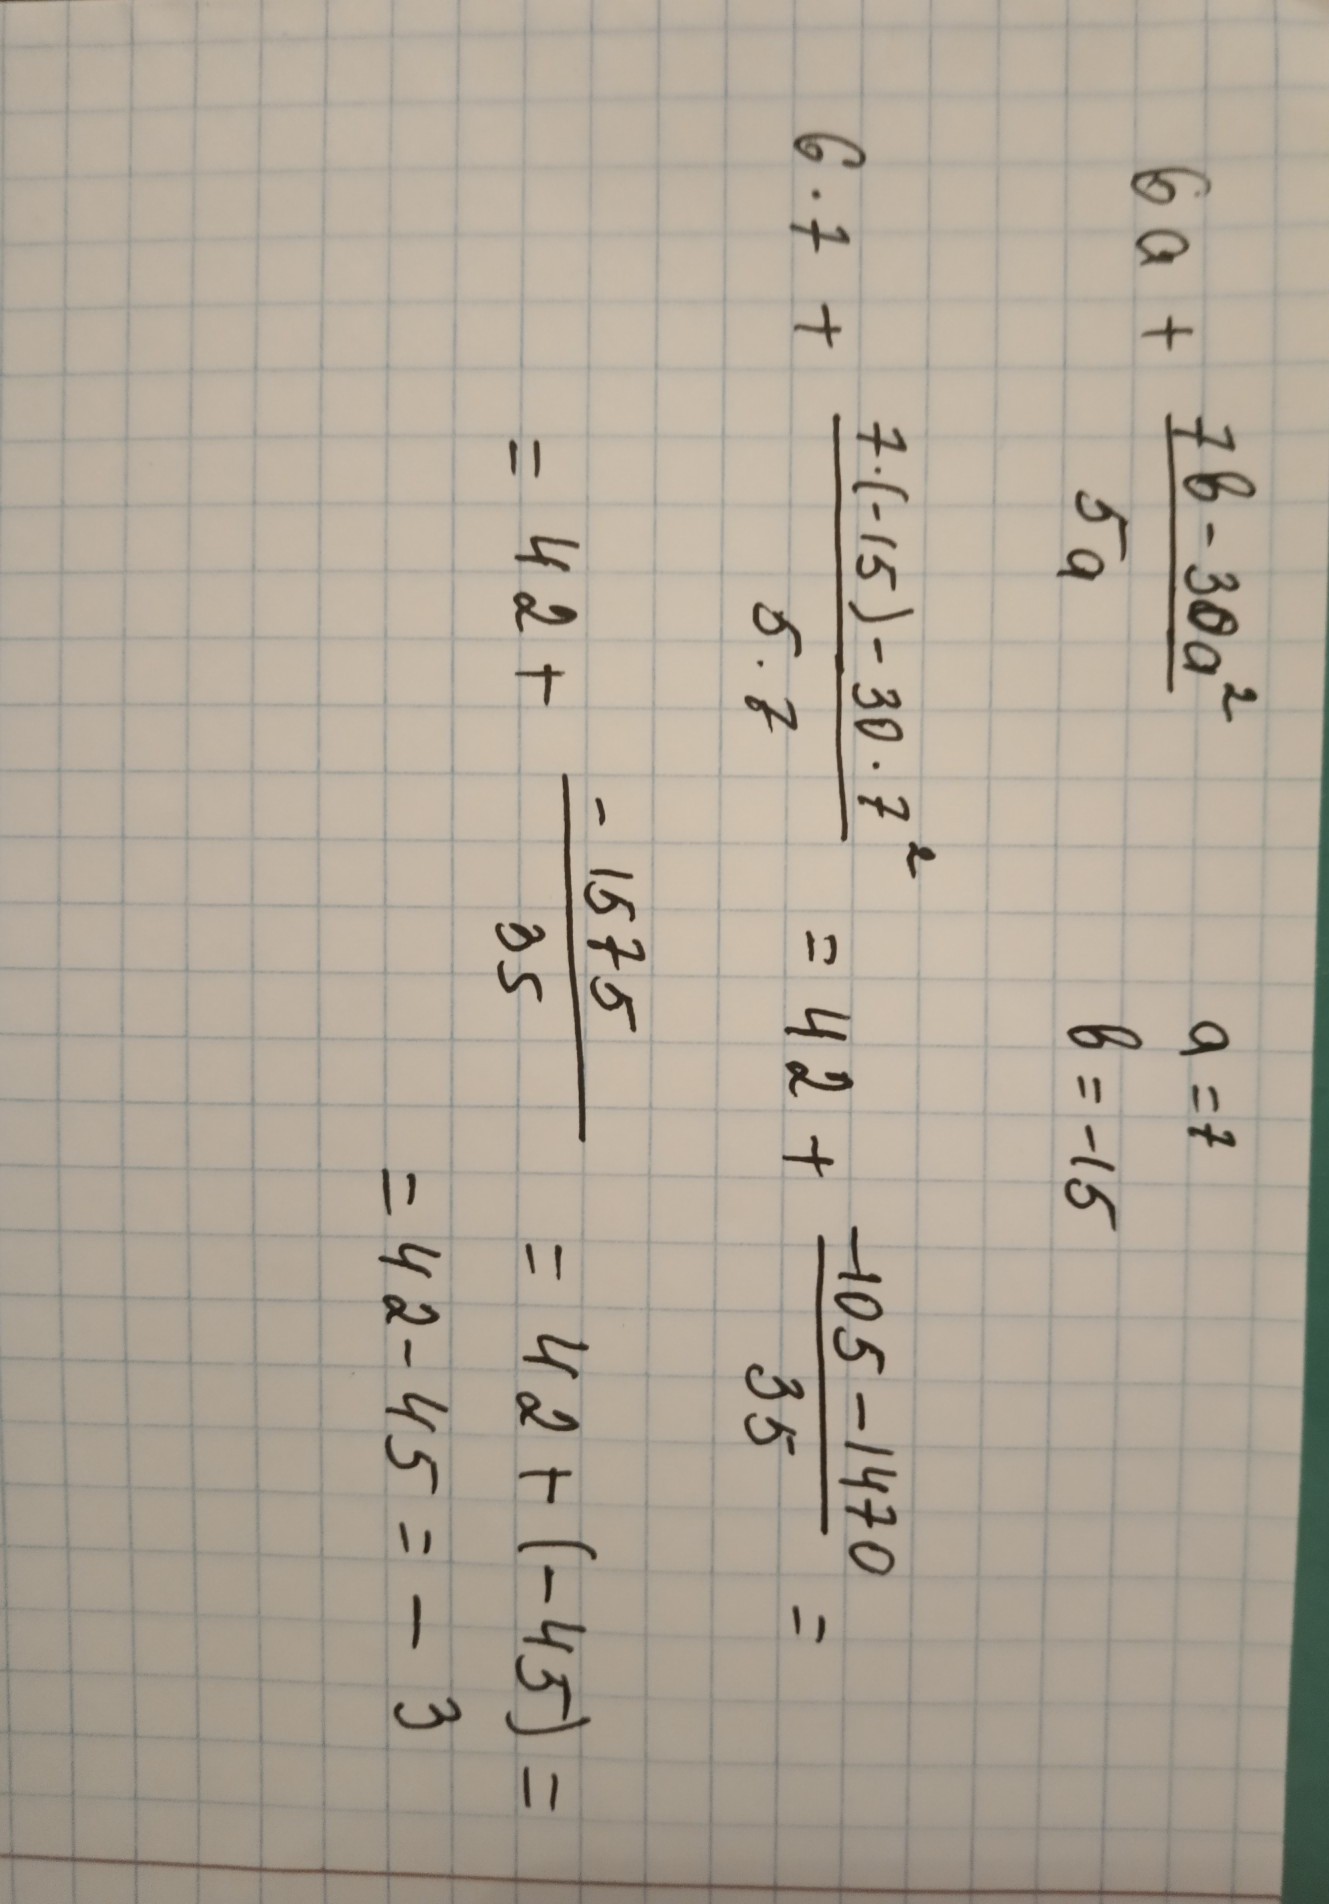 6a + (7b - 30a²)/(5a)   a = 7
b = -15
6·7 + (7·(-15) - 30·7²)/(5·7) = 42 + (-105 - 1470)/35 =
= 42 + (-1575)/35 = 42 + (-45) =
= 42 - 45 = -3